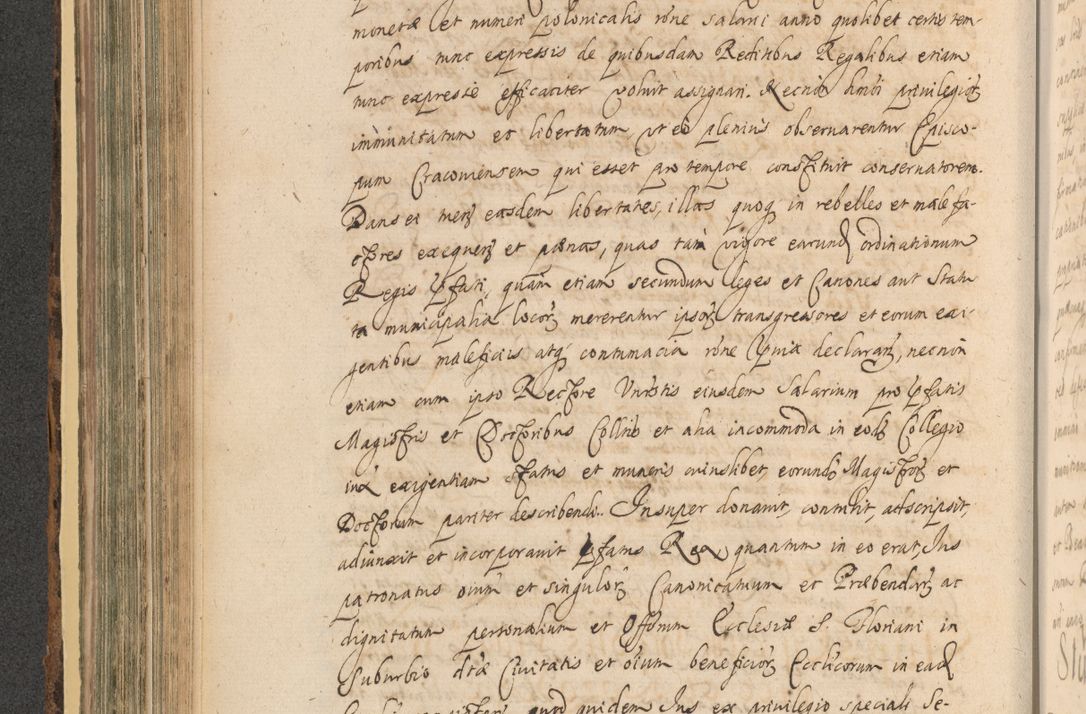 monetæ et numeri polonicalis rõne salarii anno quolibet certis tem-
poribus tunc expressis de quibusdam Redittibus Regalibus etiam
tunc expresse efficaciter voluit assignari. Necnõ hmõi privilegiorz
immunitatum et libertatum ut eo plenius observarentur Episco-
pum Cracouiensem qui esset pro tempore constituit conservatorem.
Dans ei easdem libertates, illas quoq in rebelles et malefa-
ctores et pænas, quas tam vigore earund ordinationum
Regis pfati, quam etiam secundum leges et Canones aut Statu
ta municipalia locorz mererentur ipsorz transgressores et eorum exi-
gentibus maleficiis atq contumacia rõne declararz, necnon
etiam cum ipso Rectore Vnirstis eiusdem Salarium pro pfatis
Magistris et Doctoribus Colltib et alia incommoda in eodz Collegio
iuxa exigentiam status et muneris cuiuslibet, eorundz Magistrorz et
Doctorum pariter describendi. Insuper donavit, contulit, attscripsit,
adiunxit et incorporauit pfatus Rex quantum in eo erat, Jus
patronatus oium et singulorz Canonicatuum et Præbendarz ac
dignitatum personatuum et Offõrum Ecclesiæ S. Floriani in
Suburbio dtæ Ciuitatis et oium beneficiorz Ecclicorum in ead
quod quidem Jus ex privilegio speciali Se-